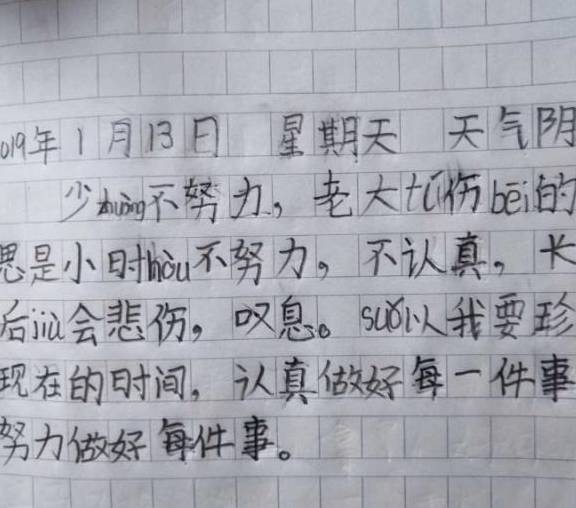 019年1月13日 星期天 天气阴
少zhuàng不努力，老大tú伤bēi的
思是小时hòu不努力，不认真，长
后jiù会悲伤，叹息。suǒ以我要珍
现在的时间，认真做好每一件事
努力做好每件事。